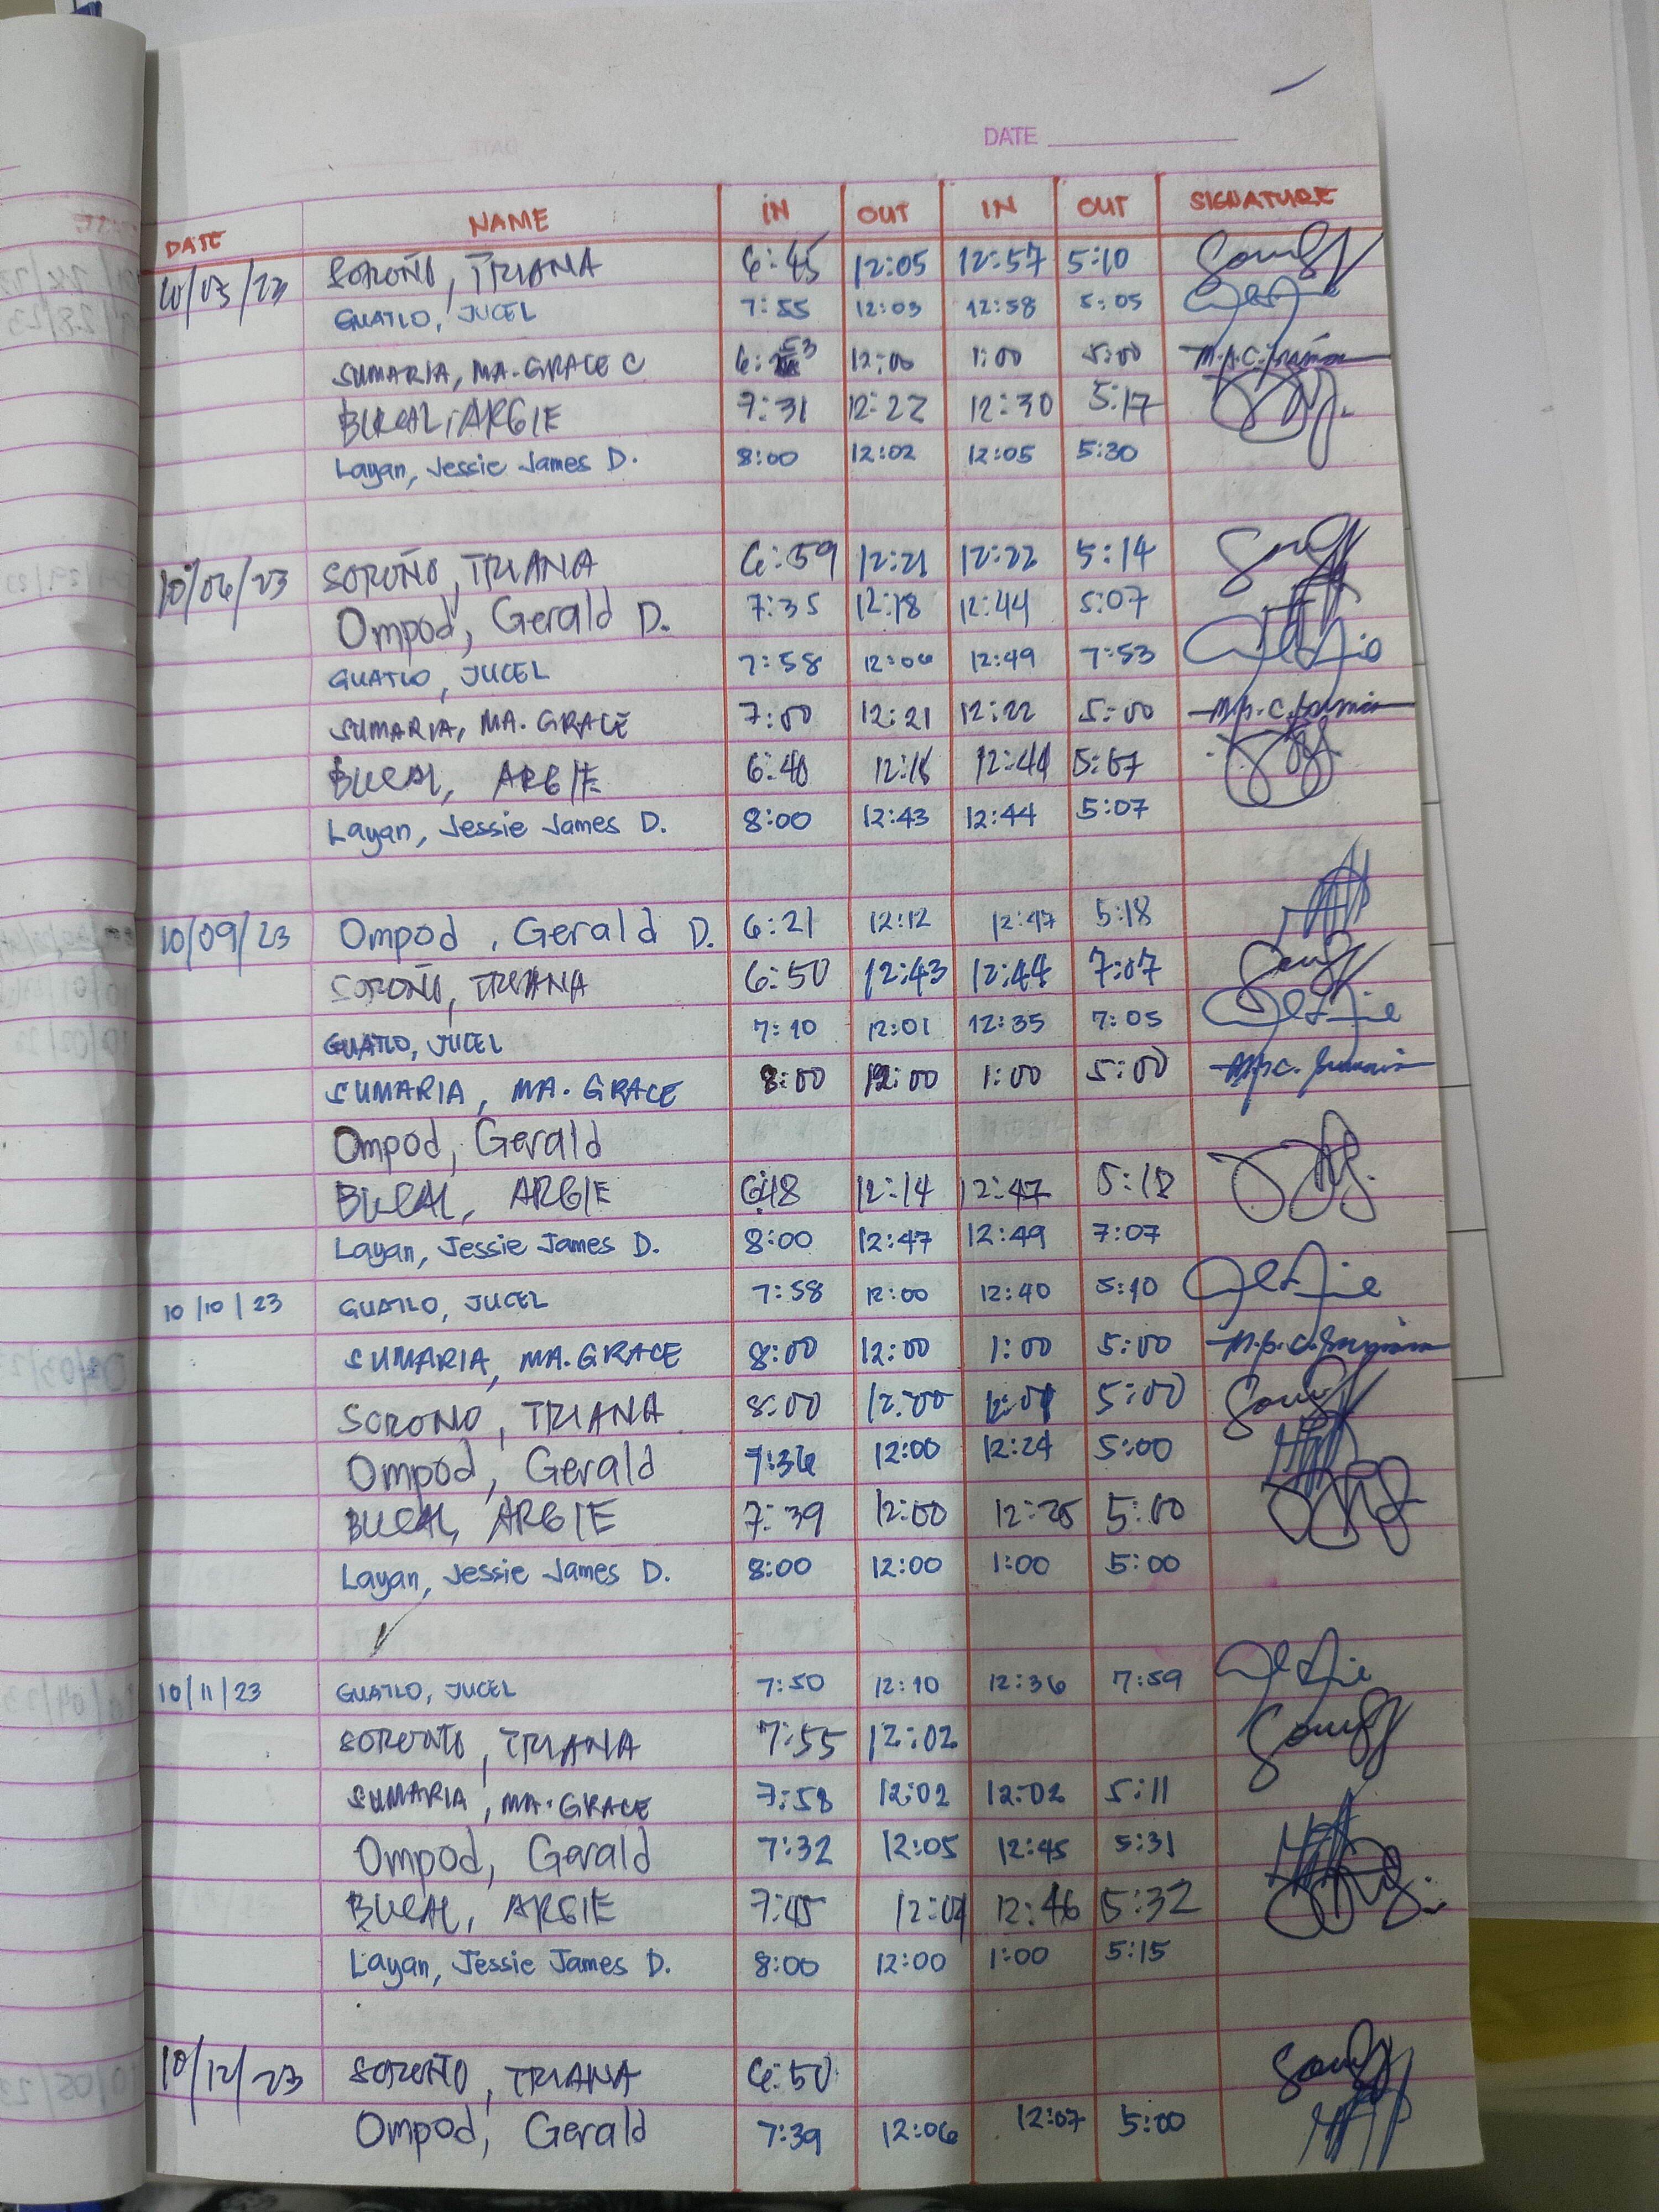 DATE
DATE NAME IN OUT IN OUT SIGNATURE
10/05/23 SOROÑO, TRIANA 6:45 12:05 12:57 5:10
GUATLO, JUCEL 7:55 12:03 12:58 5:05
SUMARIA, MA. GRACE C 12:00 1:00 5:00
BUCAL, ARGIE 7:31 12:22 12:30 5:17
Layan, Jessie James D. 8:00 12:02 12:05 5:30
10/06/23 SOROÑO, TRIANA 6:59 12:21 12:22 5:14
Ompod, Gerald D. 7:35 12:18 12:44 5:07
GUATLO, JUCEL 7:58 12:06 12:49 7:53
SUMARIA, MA. GRACE 7:00 12:21 12:22 5:00
BUCAL, ARGIE 6:40 12:44 5:07
Layan, Jessie James D. 8:00 12:43 12:44 5:07
10/09/23 Ompod, Gerald D. 6:21 12:12 12:47 5:18
SOROÑO, TRIANA 6:50 12:43 12:44 7:07
GUATLO, JUCEL 7:10 12:01 12:35 7:05
SUMARIA, MA. GRACE 8:00 12:00 1:00 5:00
Ompod, Gerald
BUCAL, ARGIE 6:48 12:14 12:47 5:18
Layan, Jessie James D. 8:00 12:47 12:49 7:07
10/10/23 GUATLO, JUCEL 7:58 12:00 12:40 5:10
SUMARIA, MA. GRACE 8:00 12:00 1:00 5:00
SOROÑO, TRIANA 8:00 12:00 12:01 5:00
Ompod, Gerald 7:36 12:00 12:24 5:00
BUCAL, ARGIE 7:39 12:00 12:25 5:00
Layan, Jessie James D. 8:00 12:00 1:00 5:00
10/11/23 GUATLO, JUCEL 7:50 12:10 12:36 7:59
SOROÑO, TRIANA 7:55 12:02
SUMARIA, MA. GRACE 7:58 12:02 12:02 5:11
Ompod, Gerald 7:32 12:05 12:45 5:31
BUCAL, ARGIE 7:45 12:04 12:46 5:32
Layan, Jessie James D. 8:00 12:00 1:00 5:15
10/12/23 SOROÑO, TRIANA 6:50
Ompod, Gerald 7:39 12:06 12:07 5:00